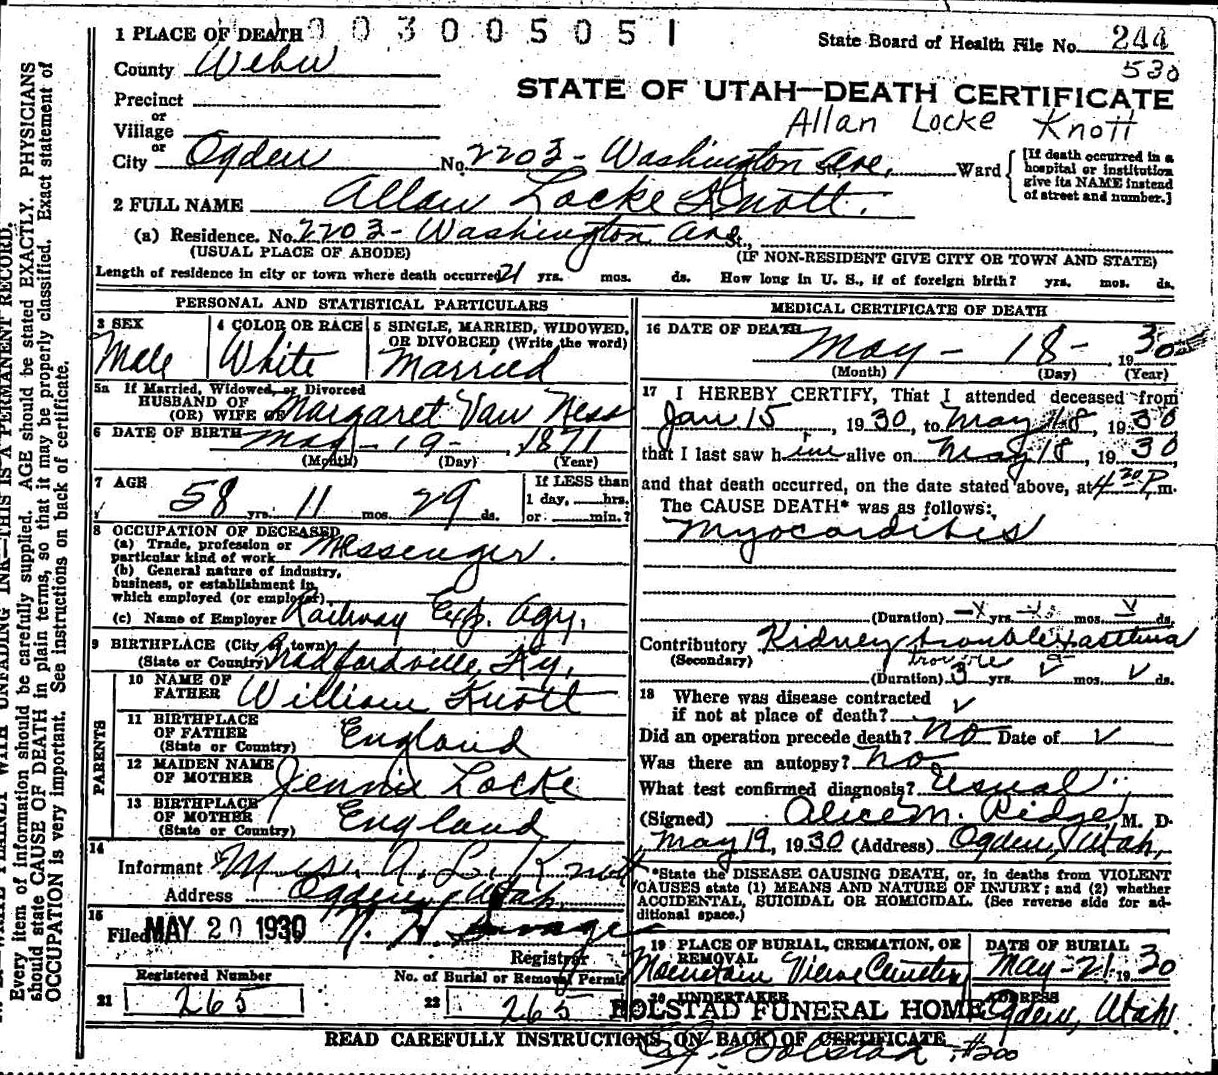 1 PLACE OF DEATH 003005051
State Board of Health File No. 244
530
County Weber
STATE OF UTAH—DEATH CERTIFICATE
Precinct
or
Village
Allan Locke Knott
or
City Ogden No. 2203 - Washington Ave. St., Ward
[If death occurred in a hospital or institution give its NAME instead of street and number.]
2 FULL NAME Allan Locke Knott.
(a) Residence. No. 2203 - Washington Ave St.,
(USUAL PLACE OF ABODE) (IF NON-RESIDENT GIVE CITY OR TOWN AND STATE)
Length of residence in city or town where death occurred 21 yrs. mos. ds. How long in U. S., if of foreign birth? yrs. mos. ds.
PERSONAL AND STATISTICAL PARTICULARS
3 SEX Male
4 COLOR OR RACE White
5 SINGLE, MARRIED, WIDOWED, OR DIVORCED (Write the word) Married
5a If Married, Widowed, or Divorced
HUSBAND OF
(OR) WIFE OF Margaret Van Ness
6 DATE OF BIRTH May - 19 - , 1871
(Month) (Day) (Year)
7 AGE 58 yrs. 11 mos. 29 ds.
If LESS than
1 day, hrs.
or min.?
8 OCCUPATION OF DECEASED
(a) Trade, profession or
particular kind of work Messenger.
(b) General nature of industry,
business, or establishment in
which employed (or employer)
(c) Name of Employer Railway Exp. Agy.
9 BIRTHPLACE (City or town)
(State or Country) Bradfordsville, Ky.
PARENTS
10 NAME OF FATHER William Knott
11 BIRTHPLACE OF FATHER
(State or Country) England
12 MAIDEN NAME OF MOTHER Jennie Locke
13 BIRTHPLACE OF MOTHER
(State or Country) England
14
Informant Mrs. A. L. Knott
Address Ogden, Utah.
15
Filed MAY 20 1930
Registrar
Registered Number No. of Burial or Removal Permit
21 265 22 265
MEDICAL CERTIFICATE OF DEATH
16 DATE OF DEATH May - 18 - , 1930
(Month) (Day) (Year)
17 I HEREBY CERTIFY, That I attended deceased from
Jan 15, 1930, to May 18, 1930
that I last saw him alive on May 18, 1930
and that death occurred, on the date stated above, at 4 30 P.m.
The CAUSE DEATH* was as follows:
Myocarditis
(Duration) yrs. mos. ds.
Contributory Kidney trouble & asthma
(Secondary) trouble
(Duration) 3 yrs. mos. ds.
18 Where was disease contracted
if not at place of death?
Did an operation precede death? No Date of
Was there an autopsy? No
What test confirmed diagnosis? Usual
(Signed) Alice M. Ridge M. D.
May 19, 1930 (Address) Ogden, Utah.
*State the DISEASE CAUSING DEATH, or, in deaths from VIOLENT
CAUSES state (1) MEANS AND NATURE OF INJURY; and (2) whether
ACCIDENTAL, SUICIDAL OR HOMICIDAL. (See reverse side for ad-
ditional space.)
19 PLACE OF BURIAL, CREMATION, OR REMOVAL Mountain View Cemetery
DATE OF BURIAL May - 21 1930
20 UNDERTAKER BOLSTAD FUNERAL HOME
ADDRESS Ogden, Utah
READ CAREFULLY INSTRUCTIONS ON BACK OF CERTIFICATE
Bolstad #200
WRITE PLAINLY WITH UNFADING INK—THIS IS A PERMANENT RECORD.
Every item of information should be carefully supplied. AGE should be stated EXACTLY. PHYSICIANS
should state CAUSE OF DEATH in plain terms, so that it may be properly classified. Exact statement of
OCCUPATION is very important. See instructions on back of certificate.